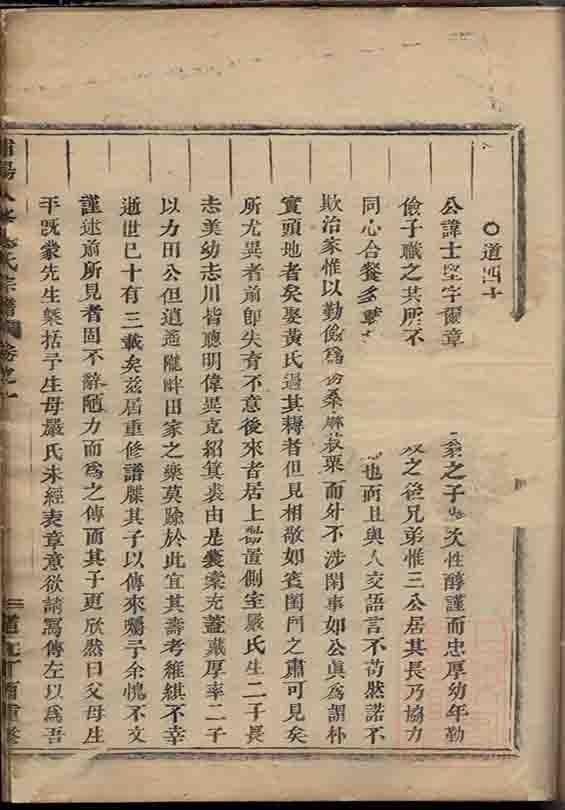 道四十
公諱士堅字爾章 之子 次性醇謹而忠厚幼年勤
儉子職之其所不 之後兄弟惟三公居其長乃協力
同心合餐 也而且與人交語言不苟然諾不
欺治家惟以勤儉爲 桑麻菽粟而外不涉閑事如公眞爲謂朴
實頭地者矣娶黃氏過其耨者但見相敬如賓閨門之肅可見矣
所尤異者前卽失育不意後來者居上 置側室嚴氏生二子長
志美幼志川皆聰明偉異克紹箕裘由是囊橐充蓋藏厚率二子
以力田公但逍遙隴畔田家之樂莫踰於此宜其壽考維祺不幸
逝世巳十有三載矣兹居重修譜牒其子以傳來囑予余愧不文
謹述前所見者固不辭陋力而爲之傳而其子更欣然曰父母生
平既蒙先生檃括予生母嚴氏未經表章意欲請寫傳左以爲吾
氏宗譜 卷之十
道光丁酉重修